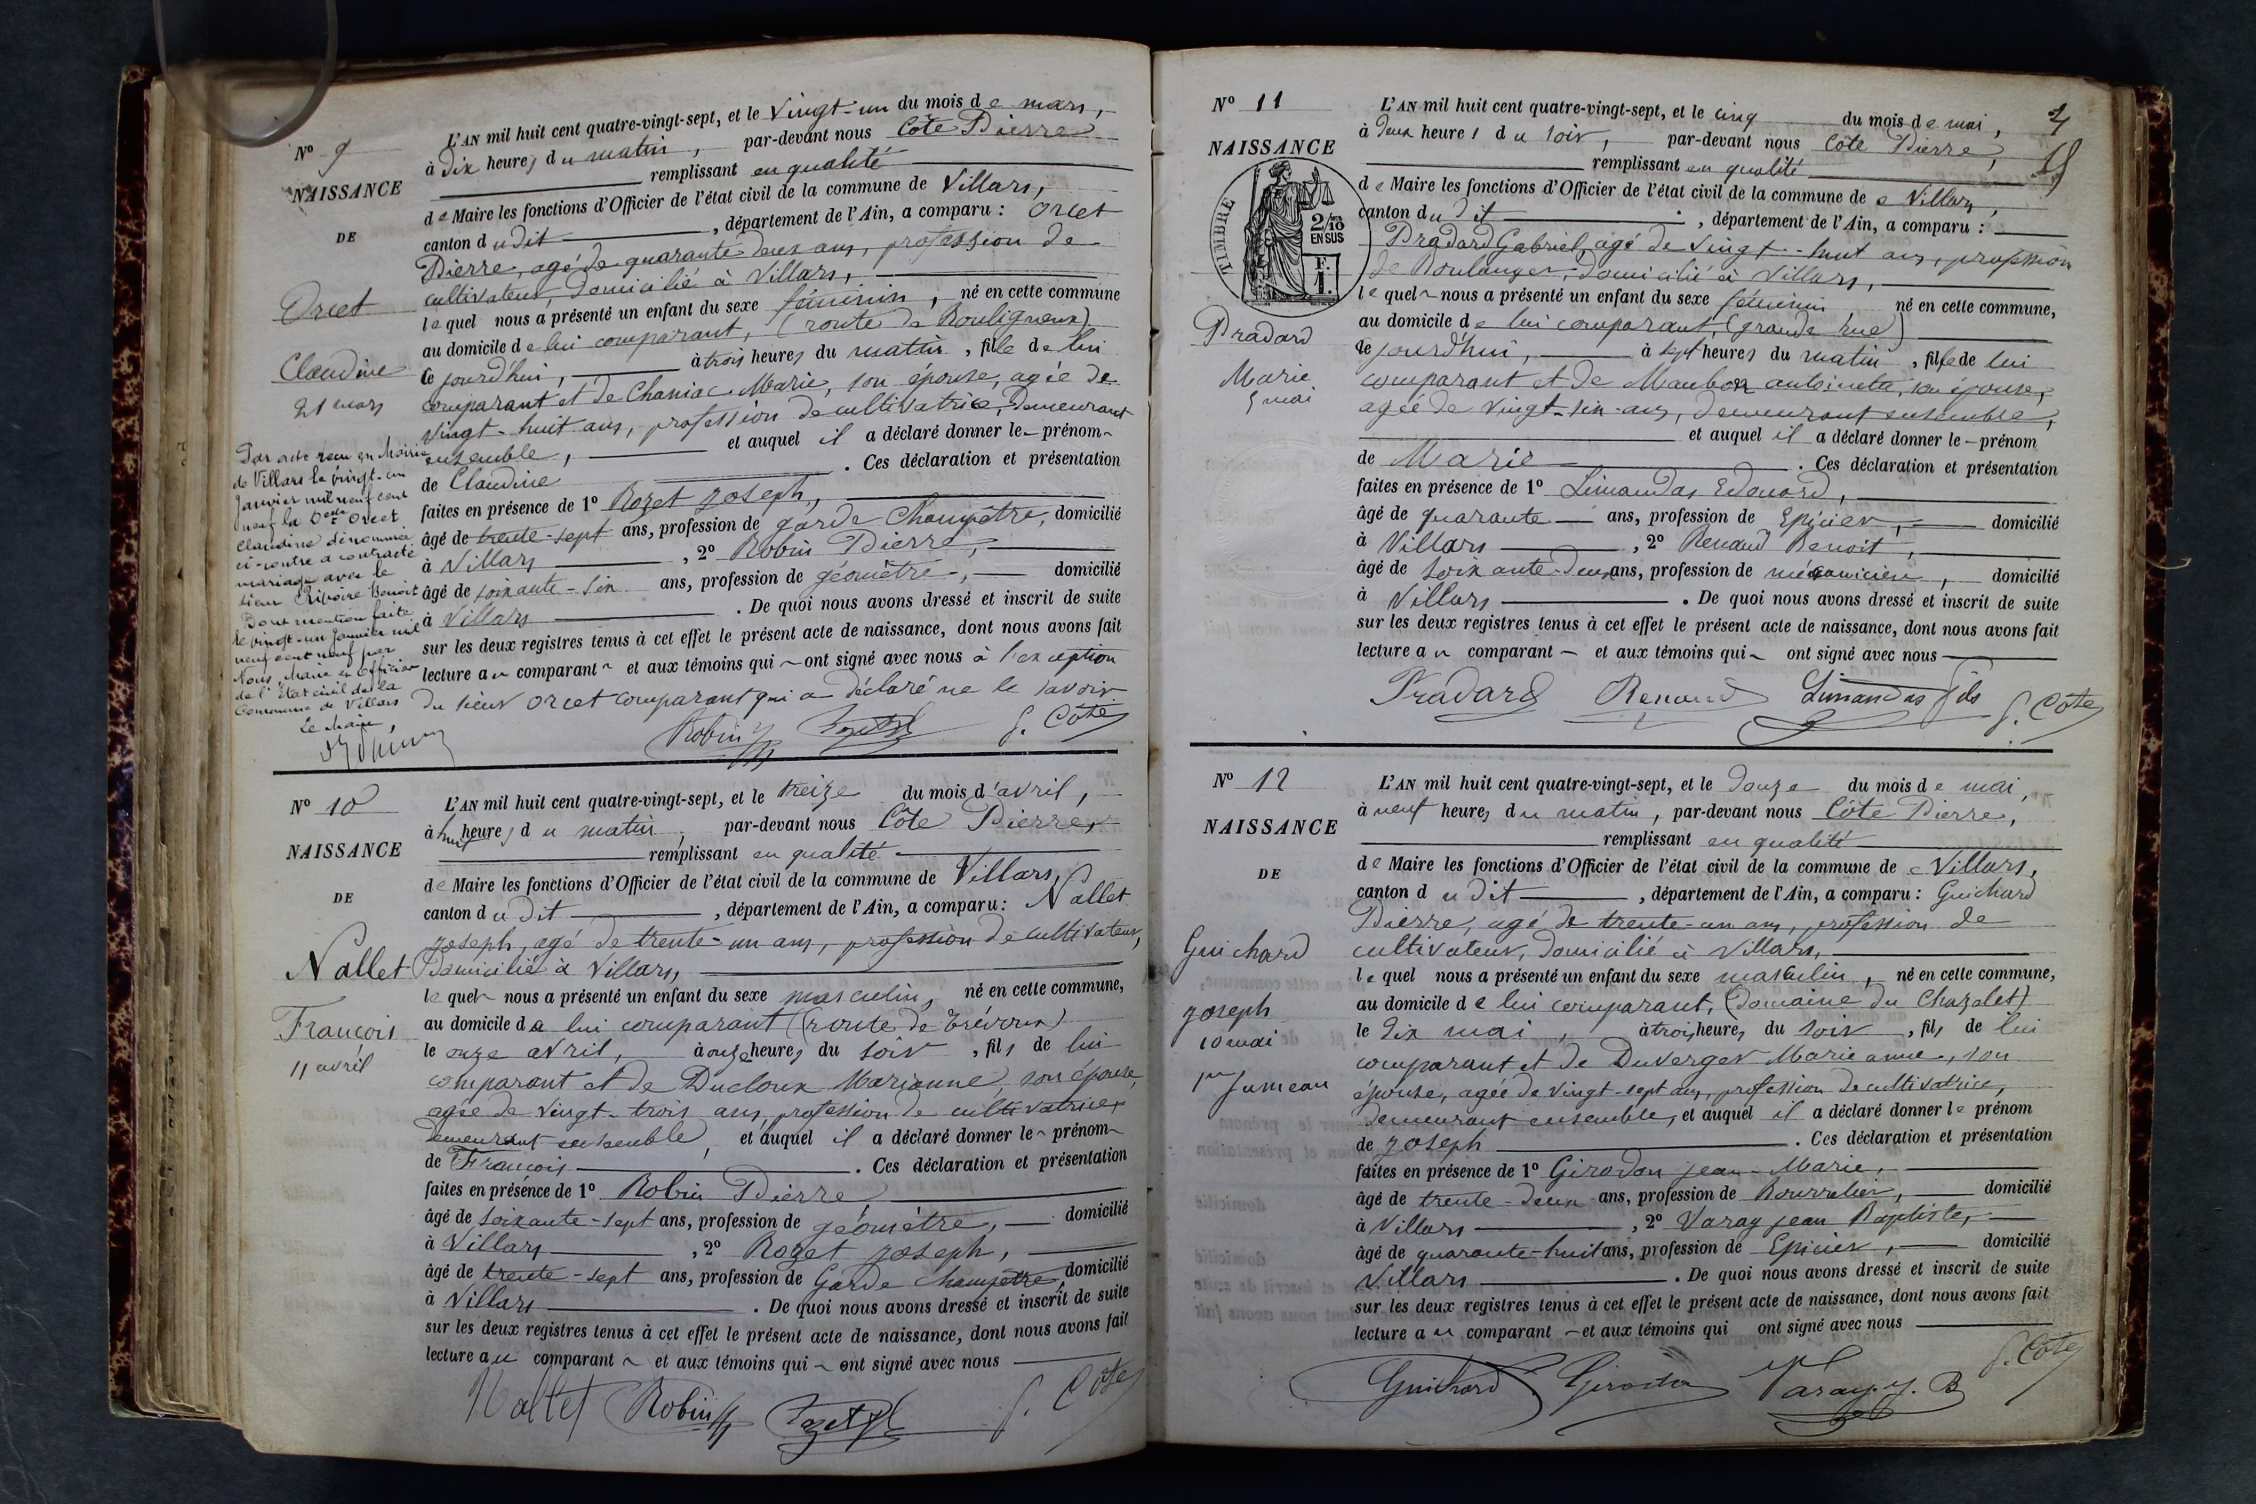 N° 9
NAISSANCE
DE
Orcet
Claudine
21 mars
Par acte reçu en Mairie
de Villars le vingt-un
Janvier mil neuf cent
neuf la Delle Orcet
Claudine dénommée
ci-contre a contracté
mariage avec le
sieur Ripoire Benoit
Dont mention faite
le vingt-un Janvier mil
neuf cent neuf par
Nous, Maire en Officier
de l'Etat civil de la
Commune de Villars
Le Maire,
L'AN mil huit cent quatre-vingt-sept, et le vingt-un du mois de mars,
à dix heures du matin, par-devant nous Côte Pierre
remplissant en qualité
de Maire les fonctions d'Officier de l'état civil de la commune de Villars,
canton du dit, département de l'Ain, a comparu : Orcet
Pierre, agé de quarante deux ans, profession de
cultivateur, domicilié à Villars,
lequel nous a présenté un enfant du sexe féminin, né en cette commune
au domicile de lui comparant, (route de Bouligneux)
ce jourd'hui, à trois heures du matin, fille de lui
comparant et de Chaniac Marie, son épouse, agée de
vingt-huit ans, profession de cultivatrice, demeurant
ensemble, et auquel il a déclaré donner le prénom
de Claudine. Ces déclaration et présentation
faites en présence de 1° Rozet Joseph,
âgé de trente-sept ans, profession de garde champêtre, domicilié
à Villars, 2° Robin Pierre,
âgé de soixante-six ans, profession de géomètre, domicilié
à Villars. De quoi nous avons dressé et inscrit de suite
sur les deux registres tenus à cet effet le présent acte de naissance, dont nous avons fait
lecture au comparant et aux témoins qui ont signé avec nous à l'exception
du sieur Orcet comparant qui a déclaré ne le savoir
Robin P. Côte
N° 10
NAISSANCE
DE
Nallet
François
11 avril
L'AN mil huit cent quatre-vingt-sept, et le treize du mois d'avril,
à huit heures du matin, par-devant nous Côte Pierre,
remplissant en qualité
de Maire les fonctions d'Officier de l'état civil de la commune de Villars,
canton du dit, département de l'Ain, a comparu : Nallet
Joseph, agé de trente-un ans, profession de cultivateur,
Domicilié à Villars,
lequel nous a présenté un enfant du sexe masculin, né en cette commune,
au domicile de lui comparant (route de Trévoux)
le onze avril, à onze heures du soir, fils de lui
comparant et de Ducloux Marianne, son épouse,
agée de vingt-trois ans, profession de cultivatrice,
demeurant ensemble, et auquel il a déclaré donner le prénom
de François. Ces déclaration et présentation
faites en présence de 1° Robin Pierre,
âgé de soixante-sept ans, profession de géomètre, domicilié
à Villars, 2° Rozet Joseph,
âgé de trente-sept ans, profession de Garde champêtre, domicilié
à Villars. De quoi nous avons dressé et inscrit de suite
sur les deux registres tenus à cet effet le présent acte de naissance, dont nous avons fait
lecture au comparant et aux témoins qui ont signé avec nous
Nallet Robin P. Côte
4
N° 11
NAISSANCE
TIMBRE
2/10
EN SUS
F.
1.
Pradard
Marie
5 mai
L'AN mil huit cent quatre-vingt-sept, et le cinq du mois de mai,
à deux heures du soir, par-devant nous Côte Pierre,
remplissant en qualité
de Maire les fonctions d'Officier de l'état civil de la commune de Villars,
canton du dit, département de l'Ain, a comparu :
Pradard Gabriel, agé de vingt-huit ans, profession
de Boulanger, domicilié à Villars,
lequel nous a présenté un enfant du sexe féminin né en cette commune,
au domicile de lui comparant, (grande rue)
ce jourd'hui, à sept heures du matin, fille de lui
comparant et de Maubon antoinette, son épouse,
agée de vingt-six ans, demeurant ensemble,
et auquel il a déclaré donner le prénom
de Marie. Ces déclaration et présentation
faites en présence de 1° Limandas Edouard,
âgé de quarante ans, profession de Epicier, domicilié
à Villars, 2° Renaud Benoit,
âgé de soixante-deux ans, profession de mécanicien, domicilié
à Villars. De quoi nous avons dressé et inscrit de suite
sur les deux registres tenus à cet effet le présent acte de naissance, dont nous avons fait
lecture au comparant et aux témoins qui ont signé avec nous
Pradard Renaud Limandas fils P. Côte
N° 12
NAISSANCE
DE
Guichard
Joseph
10 mai
1er Jumeau
L'AN mil huit cent quatre-vingt-sept, et le douze du mois de mai,
à neuf heures du matin, par-devant nous Côte Pierre,
remplissant en qualité
de Maire les fonctions d'Officier de l'état civil de la commune de Villars,
canton du dit, département de l'Ain, a comparu : Guichard
Pierre, agé de trente-un ans, profession de
cultivateur, domicilié à Villars,
lequel nous a présenté un enfant du sexe masculin, né en cette commune,
au domicile de lui comparant, (Domaine du Chazelet)
le dix mai, à trois heures du soir, fils de lui
comparant et de Duverger Marie anne, son
épouse, agée de vingt-sept ans, profession de cultivatrice,
demeurant ensemble, et auquel il a déclaré donner le prénom
de Joseph. Ces déclaration et présentation
faites en présence de 1° Girodon jean-Marie,
âgé de trente-deux ans, profession de Bourrelier, domicilié
à Villars, 2° Varay jean Baptiste,
âgé de quarante-huit ans, profession de Epicier, domicilié
Villars. De quoi nous avons dressé et inscrit de suite
sur les deux registres tenus à cet effet le présent acte de naissance, dont nous avons fait
lecture au comparant et aux témoins qui ont signé avec nous
Guichard Girodon Varay J. B P. Côte